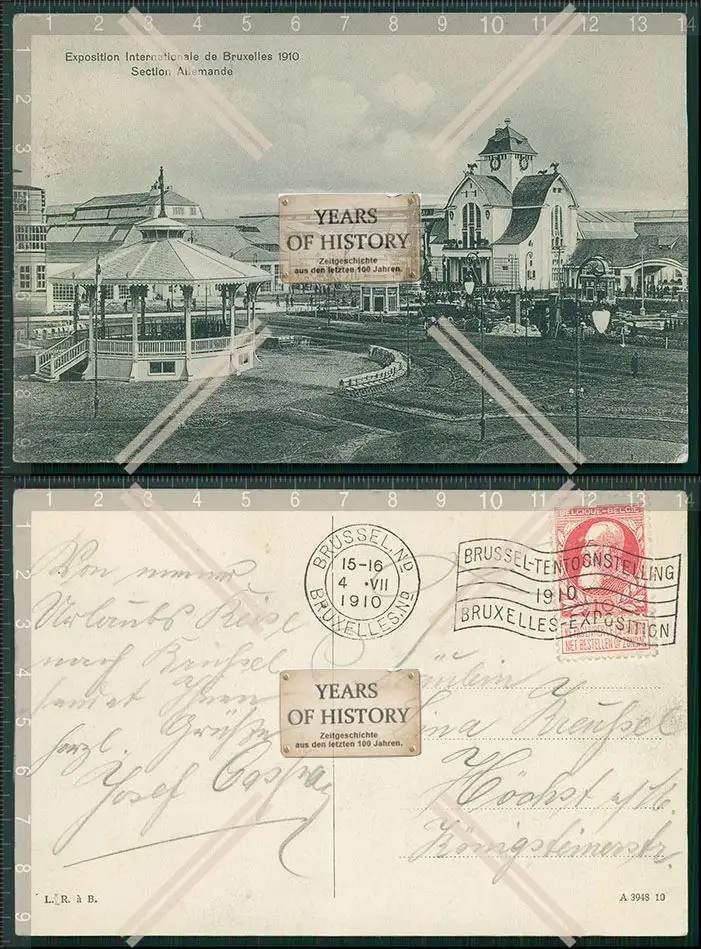 Exposition Internationale de Bruxelles 1910
Section Allemande
YEARS
OF HISTORY
Zeitgeschichte
aus den letzten 100 Jahren.
BRUSSEL.ND
15-16
4 ·VII
1910
BRUXELLES.ND
BRUSSEL-TENTOONSTELLING
1910
BRUXELLES-EXPOSITION
BELGIQUE-BELGIË
NIET BESTELLEN OP ZONDAG
Von meiner
Urlaubs Reise
nach Brüssel
sendet Ihnen
herzl. Grüße
Josef
Fräulein
Kreussel
Höchst a/M.
Königsteinerstr.
YEARS
OF HISTORY
Zeitgeschichte
aus den letzten 100 Jahren.
L. R. à B.
A 3948 10